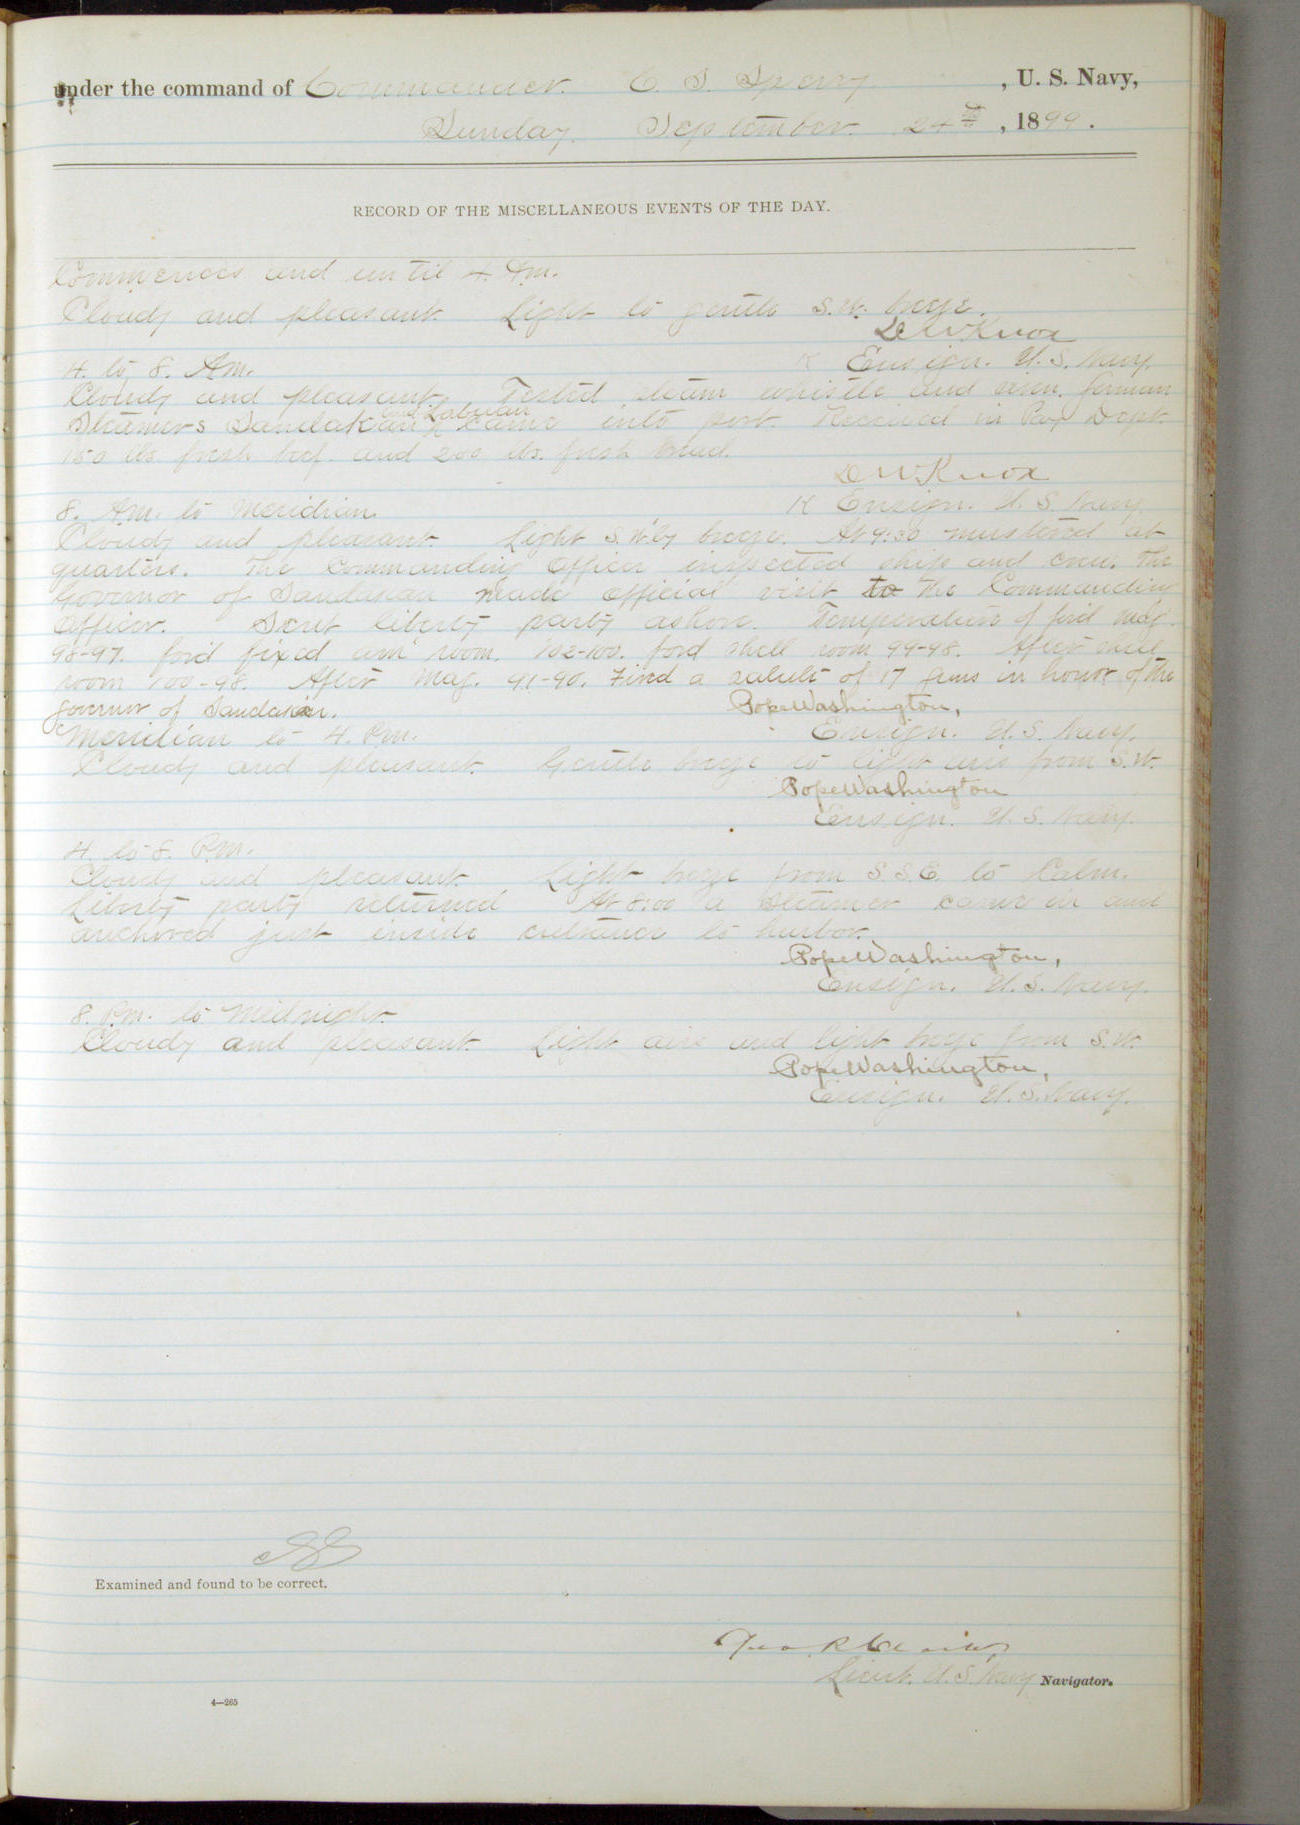 under the command of Commander. C. S. Sperry , U. S. Navy,
Sunday. September. 24th , 1899.
RECORD OF THE MISCELLANEOUS EVENTS OF THE DAY.
Commences and until 4. Am.
Cloudy and pleasant. Light to gentle S.W. breeze.
D W Knox
4. to 8. Am. K Ensign. U. S. Navy.
Cloudy and pleasant. Tested steam whistle and siren. German
and Labuan
Steamers Sandakan came into port. Received in Pay Dept.
150 lbs fresh beef and 200 lbs. fresh bread.
D W Knox
8. Am. to Meridian. K Ensign. U. S. Navy
Cloudy and pleasant. Light S.W'ly breeze. At 9:30 mustered at
quarters. The Commanding Officer inspected ship and crew. The
Governor of Sandakan made official visit to the Commanding
Officer. Sent liberty party ashore. Temperature of for'd mag.
98-97. for'd fixed am room. 102-100. for'd shell room 99-98. After shell
room 100-98. After Mag. 91-90. Fired a salute of 17 guns in honor of the
governor of Sandakan. Pope Washington,
Meridian to 4. Pm. Ensign. U. S. Navy.
Cloudy and pleasant. Gentle breeze to light airs from S.W.
Pope Washington
Ensign. U. S. Navy.
4. to 8. P.m.
Cloudy and pleasant. Light breeze from S.S.E. to Calm.
Liberty party returned At 8:00 a steamer came in and
anchored just inside entrance to harbor.
Pope Washington,
Ensign. U. S. Navy.
8. P.m. to Midnight.
Cloudy and pleasant. Light airs and light breeze from S.W.
Pope Washington,
Ensign. U. S. Navy.
Examined and found to be correct.
Lieut. U. S. Navy Navigator.
4—265